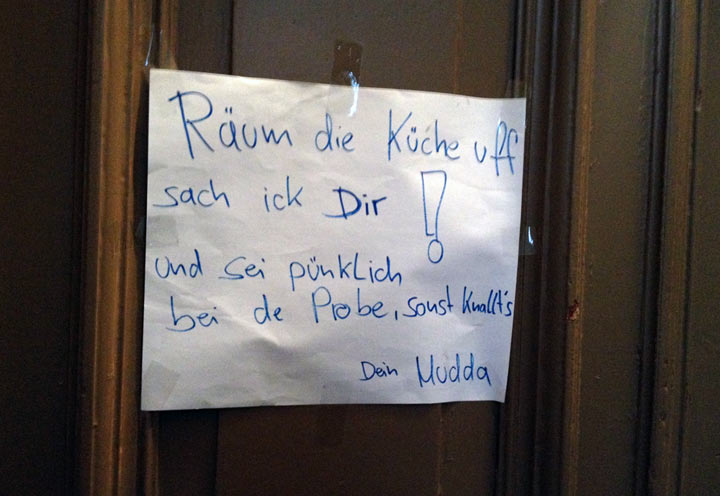 Räum die Küche uff
sach ick Dir !
und sei pünklich
bei de Probe, sonst Knallt's
Dein Mudda